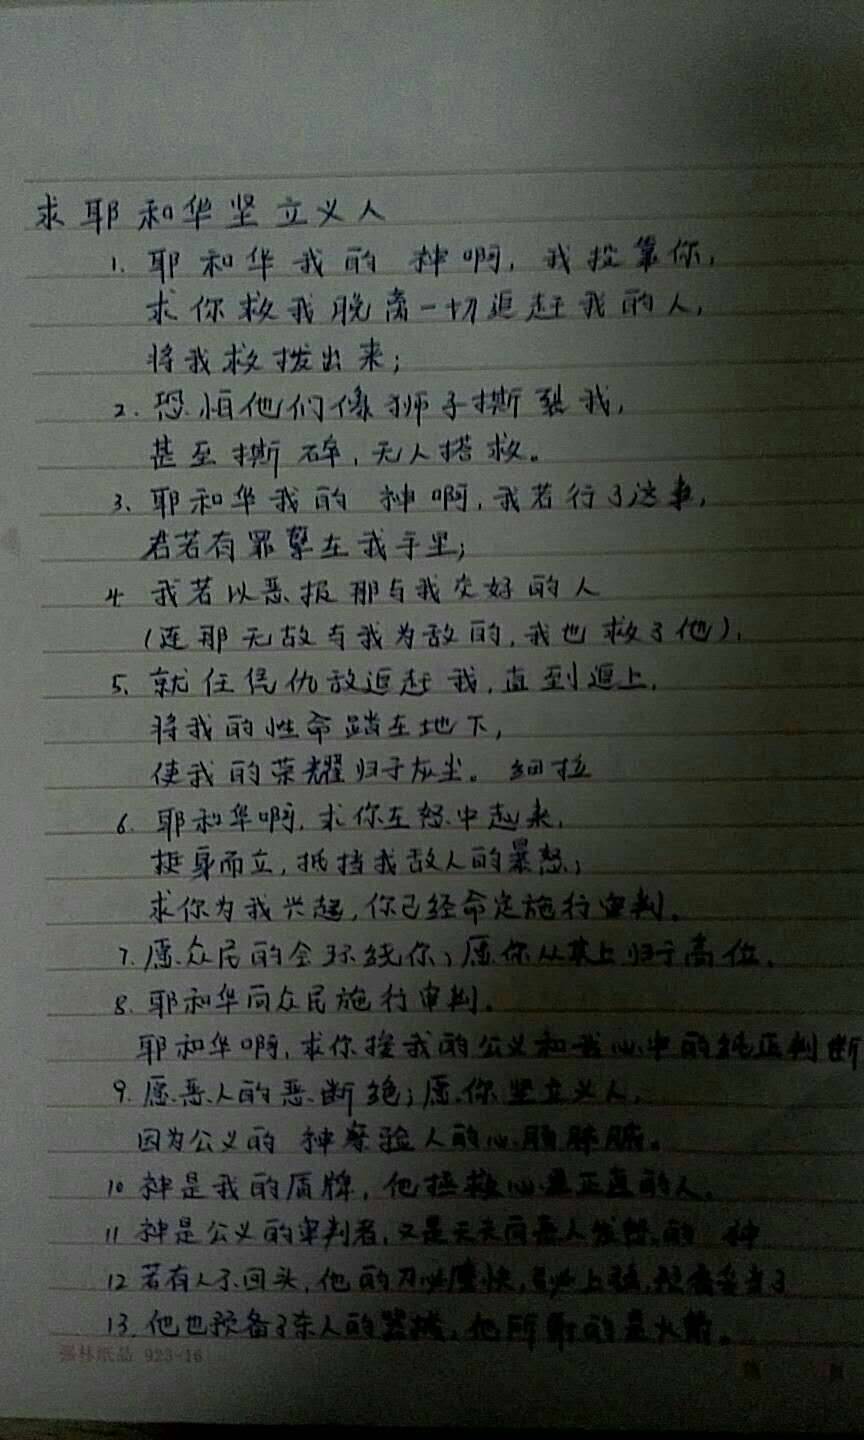 求耶和华坚立义人
1. 耶和华我的 神啊，我投靠你，
求你救我脱离一切追赶我的人，
将我救拨出来；
2. 恐怕他们像狮子撕裂我，
甚至撕碎，无人搭救。
3. 耶和华我的 神啊，我若行了这事，
若若有罪孽在我手里；
4 我若以恶报那与我交好的人
（连那无故与我为敌的，我也救了他），
5. 就任凭仇敌追赶我，直到追上，
将我的性命踏在地下，
使我的荣耀归于灰尘。 细拉
6. 耶和华啊，求你在怒中起来，
挺身而立，抵挡我敌人的暴怒；
求你为我兴起，你已经命定施行审判。
7. 愿众民的会环绕你；愿你从其上归于高位。
8. 耶和华向众民施行审判。
耶和华啊，求你按我的公义和我心中的纯正判断
9. 愿恶人的恶断绝；愿你坚立义人，
因为公义的 神察验人的心肠肺腑。
10 神是我的盾牌，他拯救心里正直的人。
11 神是公义的审判者，又是天天向恶人发怒的 神
12 若有人不回头，他的刀必磨快，弓必上弦，预备妥当了
13. 他也预备了杀人的器械，他所射的是火箭。
强林纸品 923-16
页